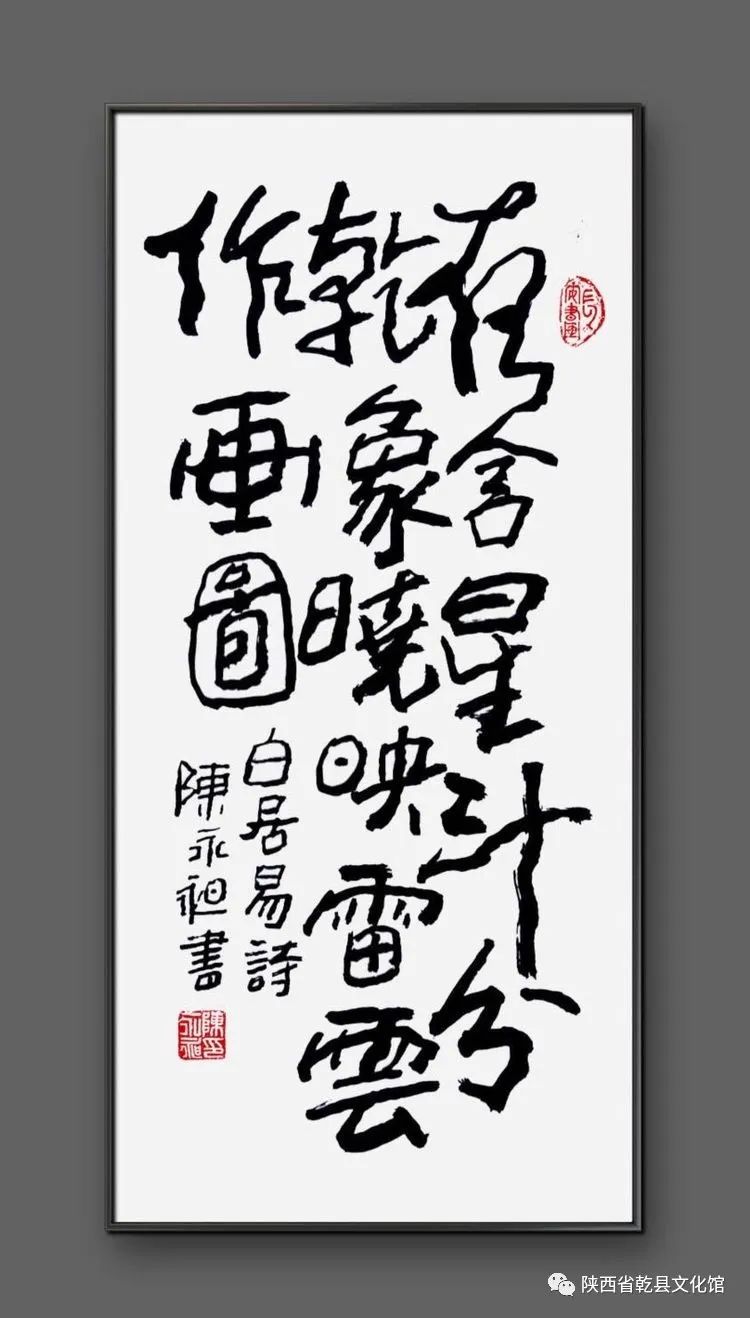 夜含星斗分
乾象曉映雷雲
作画圖
白居易詩
陳永書
陕西省乾县文化馆